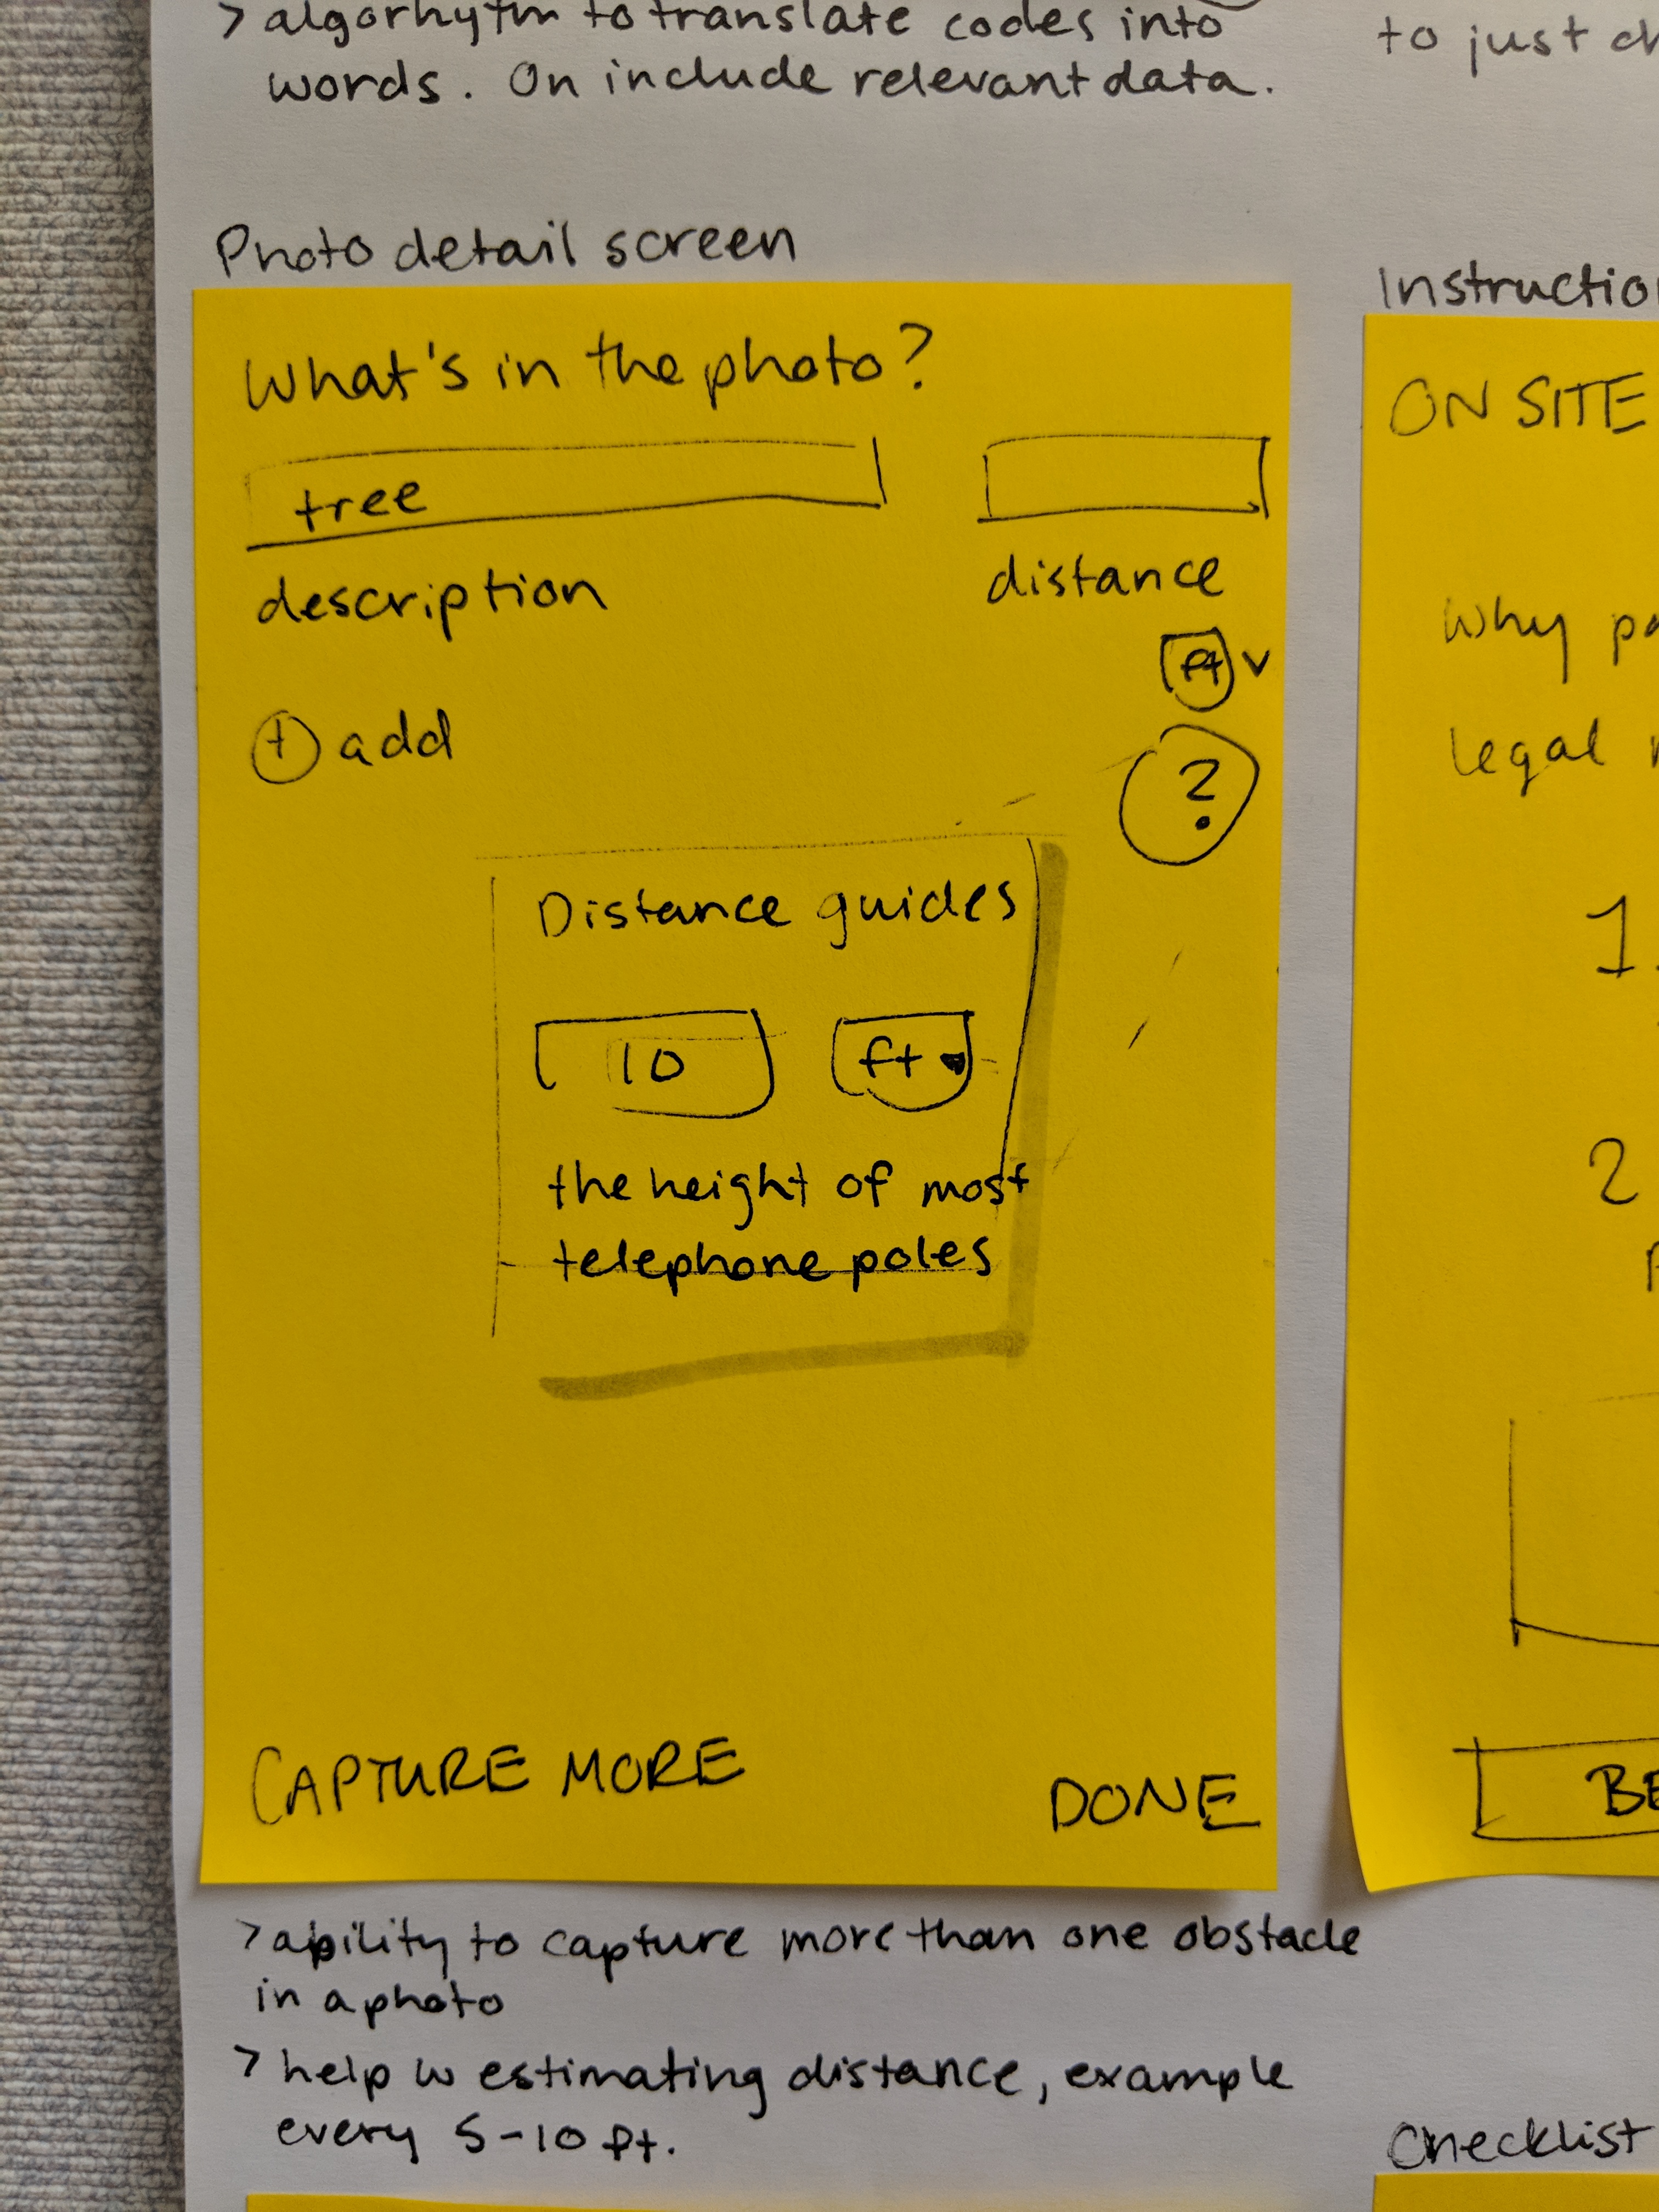 > algorhytm to translate codes into
words. On include relevant data.
to just
Photo detail screen
What's in the photo?
tree
description
distance
ft v
+ add
?
Distance guides
10 ft
the height of most
telephone poles
CAPTURE MORE
DONE
> ability to capture more than one obstacle
in a photo
> help w estimating distance, example
every 5-10 ft.
Instructio
ON SITE
Why
legal
1.
2
BE
Checklist